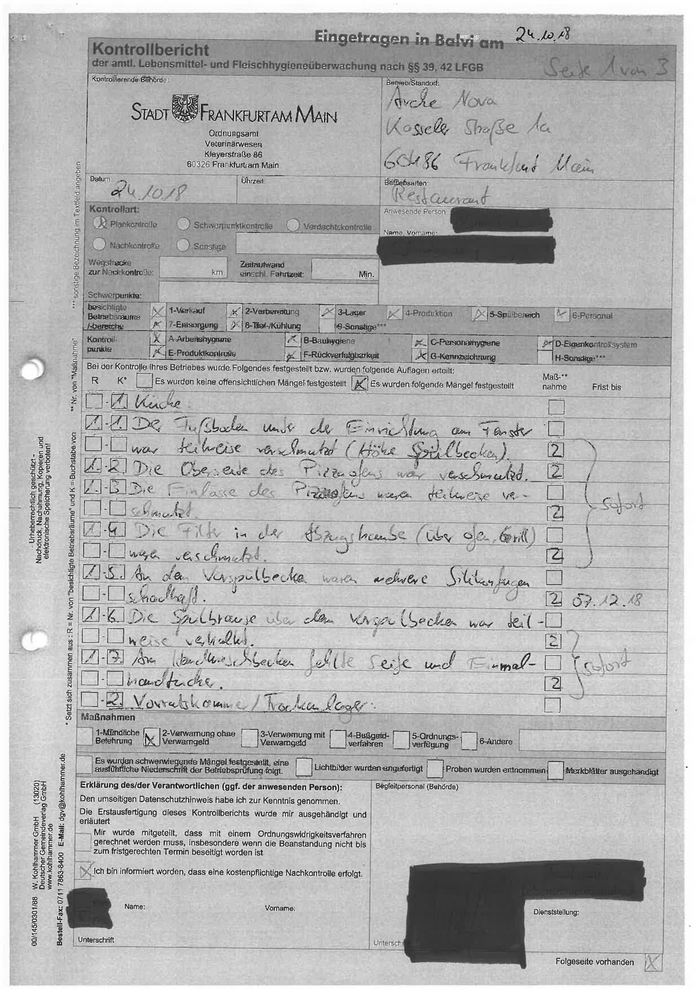 Eingetragen in Balvi am 24.10.18
Kontrollbericht
der amtl. Lebensmittel- und Fleischhygieneüberwachung nach §§ 39, 42 LFGB
Seite 1 von 3
Kontrollierende Behörde:
STADT FRANKFURT AM MAIN
Ordnungsamt
Veterinärwesen
Kleyerstraße 86
60326 Frankfurt am Main
Betrieb/Standort:
Arche Nova
Kasseler Straße 1a
60486 Frankfurt Main
Datum: 24.10.18
Uhrzeit:
Betriebsarten
Restaurant
Kontrollart:
Plankontrolle Schwerpunktkontrolle Verdachtskontrolle
Nachkontrolle Sonstige
Anwesende Person
Name, Vorname:
Wegstrecke
zur Nachkontrolle: km
Zeitaufwand
einschl. Fahrtzeit: Min.
Schwerpunkte:
besichtigte
Betriebsräume
/-bereiche
1-Verkauf 2-Vorbereitung 3-Lager 4-Produktion 5-Spülbereich 6-Personal
7-Entsorgung 8-Tief-/Kühlung 9-Sonstige***
Kontroll-
punkte
A-Arbeitshygiene B-Bauhygiene C-Personalhygiene D-Eigenkontrollsystem
E-Produktkontrolle F-Rückverfolgbarkeit G-Kennzeichnung H-Sonstige***
Bei der Kontrolle Ihres Betriebes wurde Folgendes festgestellt bzw. wurden folgende Auflagen erteilt:
R K* Es wurden keine offensichtlichen Mängel festgestellt Es wurden folgende Mängel festgestellt
Maß-**
nahme
Frist bis
1. Küche
1. Der Fußboden unter der Einrichtung am Fenster
war teilweise verschmutzt (Höhe Spülbecken). 2
2. Die Oberseite des Pizzaofens war verschmutzt. 2
3. Die Einlasse des Pizzaofens waren teilweise ver-
schmutzt. 2 sofort
4. Die Filter in der Abzugshaube (über Ofen, Grill)
waren verschmutzt. 2
5. An dem Vorspülbecken waren mehrere Silikonfugen
schadhaft. 2 07.12.18
6. Die Spülbrause über dem Vorspülbecken war teil-
weise verkalkt. 2
7. Am Handwaschbecken fehlte Seife und Einmal-
handtücher. 2 sofort
2. Vorratskammer/Trockenlager:
Maßnahmen
1-Mündliche
Belehrung
2-Verwarnung ohne
Verwarngeld
3-Verwarnung mit
Verwarngeld
4-Bußgeld-
verfahren
5-Ordnungs-
verfügung
6-Andere
Es wurden schwerwiegende Mängel festgestellt, eine
ausführliche Niederschrift der Betriebsprüfung folgt.
Lichtbilder wurden angefertigt
Proben wurden entnommen
Merkblätter ausgehändigt
Erklärung des/der Verantwortlichen (ggf. der anwesenden Person):
Den umseitigen Datenschutzhinweis habe ich zur Kenntnis genommen.
Die Erstausfertigung dieses Kontrollberichts wurde mir ausgehändigt und
erläutert
Mir wurde mitgeteilt, dass mit einem Ordnungswidrigkeitsverfahren
gerechnet werden muss, insbesondere wenn die Beanstandung nicht bis
zum fristgerechten Termin beseitigt worden ist
Ich bin informiert worden, dass eine kostenpflichtige Nachkontrolle erfolgt.
Name: Vorname:
Unterschrift
Begleitpersonal (Behörde)
Dienststellung:
Unterschr
Folgeseite vorhanden
*** sonstige Bezeichnung im Textfeld angeben
** Nr. von "Maßnahme"
* Setzt sich zusammen aus : R = Nr. von "besichtigte Betriebsräume" und K = Buchstabe von
Urheberrechtlich geschützt -
Nachdruck, Nachahmung, Kopieren und
elektronische Speicherung verboten!
00/145/0301/88 W. Kohlhammer GmbH (13020)
Deutscher Gemeindeverlag GmbH
www.kohlhammer.de
Bestell-Fax: 0711 7863-8400 E-Mail: dgv@kohlhammer.de